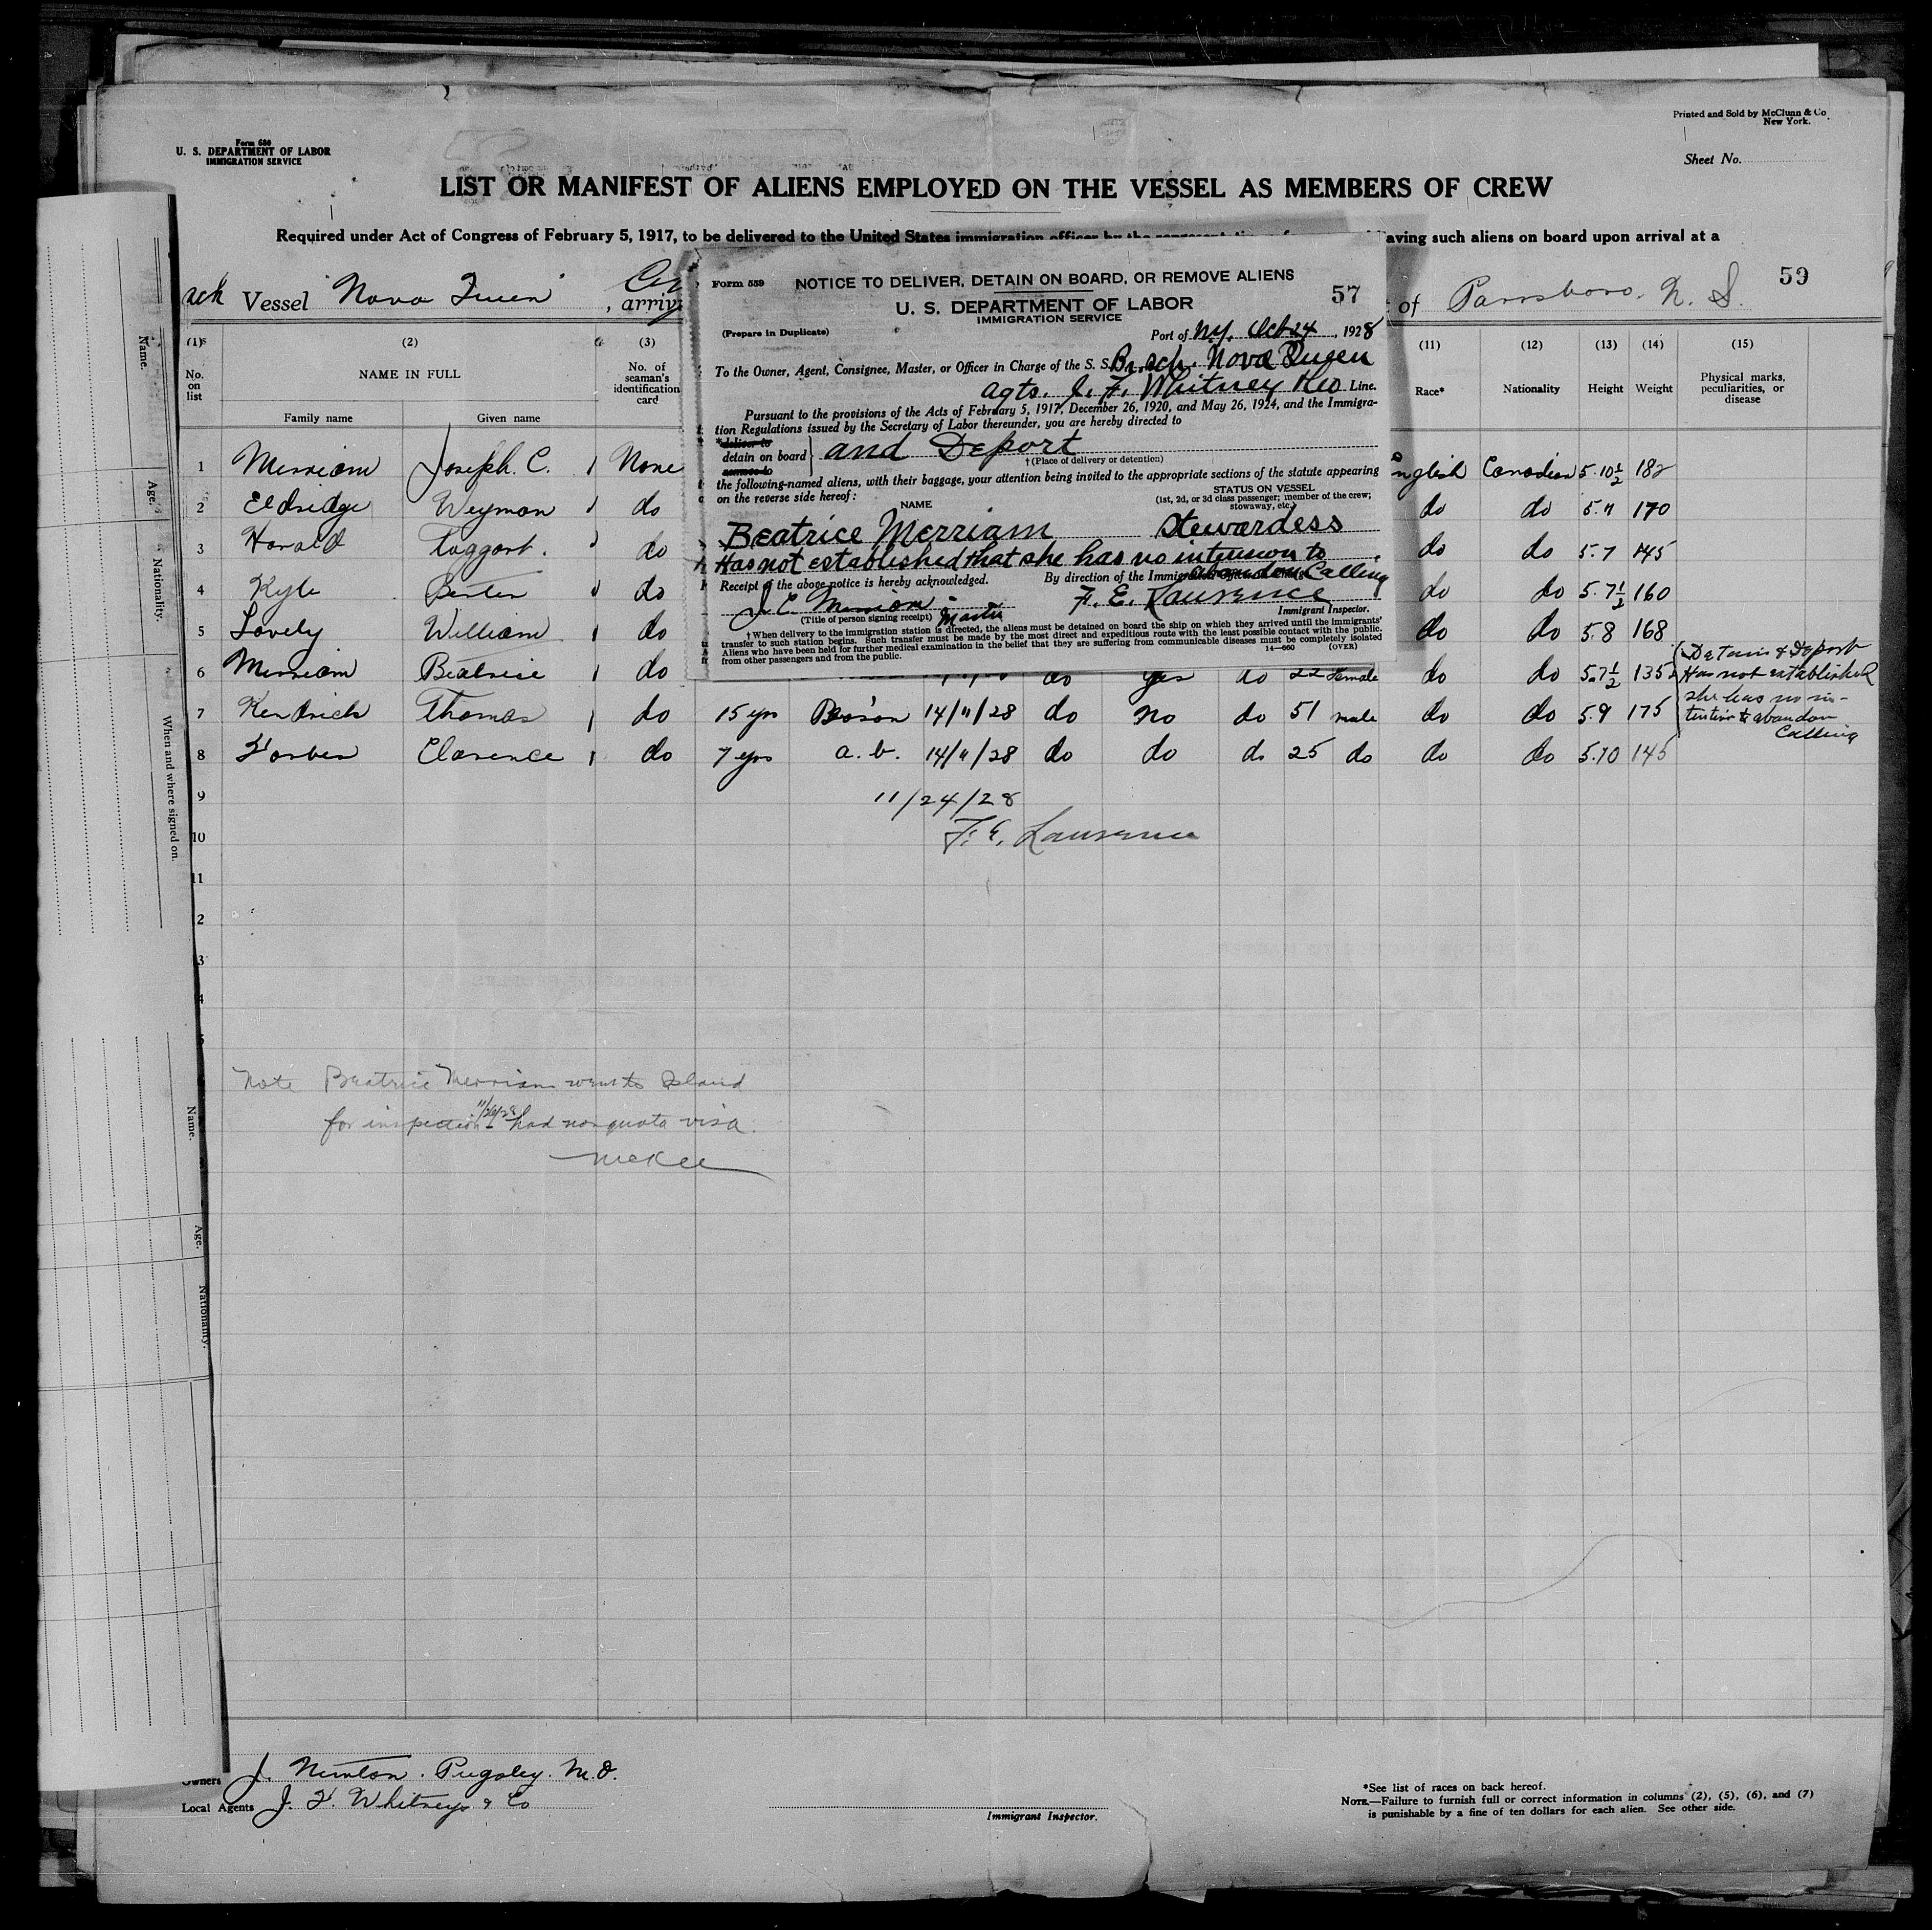 Form 680
U. S. DEPARTMENT OF LABOR
IMMIGRATION SERVICE
Printed and Sold by McClunn & Co.
New York.
Sheet No.
LIST OR MANIFEST OF ALIENS EMPLOYED ON THE VESSEL AS MEMBERS OF CREW
Required under Act of Congress of February 5, 1917, to be delivered to the United States immigration officer by the representative of aving such aliens on board upon arrival at a
Vessel "Nova Queen" , arriv of Parrsboro. N. S. 59
Form 559 NOTICE TO DELIVER, DETAIN ON BOARD, OR REMOVE ALIENS
57
U. S. DEPARTMENT OF LABOR
IMMIGRATION SERVICE
(Prepare in Duplicate)
Port of N.Y. Oct 24, 1928
To the Owner, Agent, Consignee, Master, or Officer in Charge of the S. S. Br. sch. Nova Queen
agts. J. F. Whitney & Co Line.
Pursuant to the provisions of the Acts of February 5, 1917, December 26, 1920, and May 26, 1924, and the Immigra-
tion Regulations issued by the Secretary of Labor thereunder, you are hereby directed to
*deliver to
detain on board and Deport
remove to
†(Place of delivery or detention)
the following-named aliens, with their baggage, your attention being invited to the appropriate sections of the statute appearing
on the reverse side hereof:
NAME
STATUS ON VESSEL
(1st, 2d, or 3d class passenger; member of the crew;
stowaway, etc.)
Beatrice Merriam Stewardess
Has not established that she has no intension to
abandon Calling
Receipt of the above notice is hereby acknowledged. By direction of the Immigration
J. C. Merriam Master F. E. Laurence
(Title of person signing receipt) Immigrant Inspector.
†When delivery to the immigration station is directed, the aliens must be detained on board the ship on which they arrived until the immigrants'
transfer to such station begins. Such transfer must be made by the most direct and expeditious route with the least possible contact with the public.
Aliens who have been held for further medical examination in the belief that they are suffering from communicable diseases must be completely isolated
from other passengers and from the public. 14—660 (OVER)
(1) (2) (3) (11) (12) (13) (14) (15)
No. on list
NAME IN FULL
Family name Given name
No. of seaman's identification card
Race* Nationality Height Weight
Physical marks, peculiarities, or disease
1 Merriam Joseph. C. None nglish Canadian 5.10½ 182
2 Eldridge Weyman do do do 5.11 170
3 Harold Taggart. do do do 5.7 145
4 Kyle do do do 5.7½ 160
5 Lovely William do do do 5.8 168
6 Merriam Beatrice do do yes do 22 Female do do 5.7½ 135
Detain & Deport
Has not established
she has no in-
tention to abandon
Calling
7 Kendrick Thomas do 15 yrs Bos'on 14/11/28 do no do 51 male do do 5.9 175
8 Forbes Clarence do 7 yrs a.b. 14/11/28 do do do 25 do do do 5.10 145
9
11/24/28
10
F. E. Laurence
11
2
3
4
Note Beatrice Merriam went to Island
for inspection 11/26/28 had non quota visa.
McKee
Name.
Age.
Nationality.
When and where signed on.
Name.
Age.
Nationality.
Owners J. Newton. Pugsley. M.O.
Local Agents J. F. Whitney & Co
Immigrant Inspector.
*See list of races on back hereof.
NOTE.—Failure to furnish full or correct information in columns (2), (5), (6), and (7)
is punishable by a fine of ten dollars for each alien. See other side.